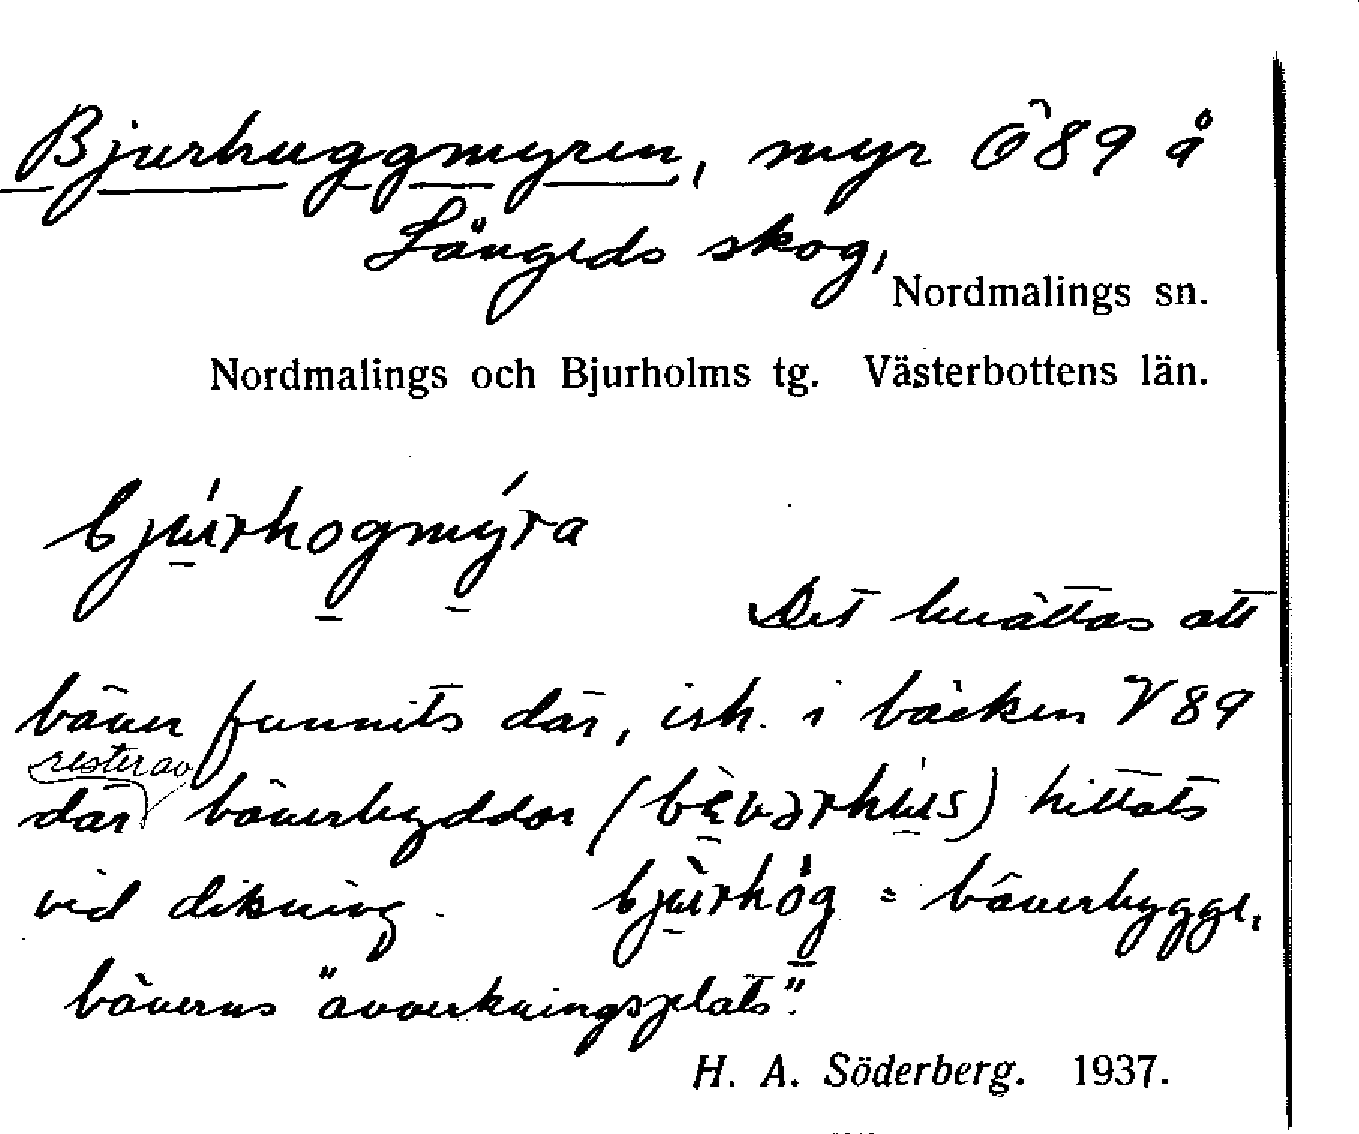 Bjurhuggmyren, myr Ö89 å
Långeds skog,
Nordmalings sn.
Nordmalings och Bjurholms tg. Västerbottens län.
bjúrhogmýra
Det berättas att
bäver funnits där, isht. i bäcken V89
där resterav bäverhyddor (bèvərhùs) hittats
vid dikning. bjùrhóg = bäverbygge,
bäverns "avverkningsplats".
H. A. Söderberg. 1937.